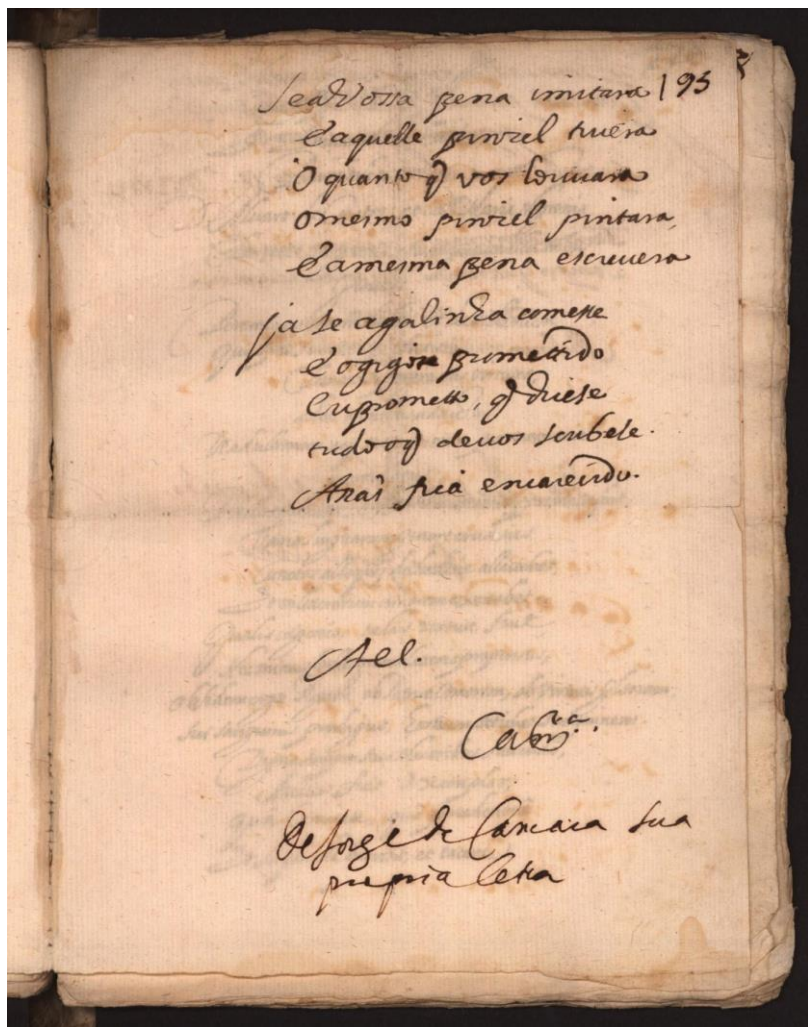 Se a Vossa pena imitara 193
E aquelle pinzel tivera
O quanto q̃ vos louvara
o mesmo pinzel pintara,
E a mesma pena escrevera
ja se a galinha comesse
E o gigote prometido
Eu prometto, q̃ dicese
tudo o q̃ de vos soubese.
Mas encarecido.
Ael.
Cam.ª
De Jorge de Camara sua
propria letra